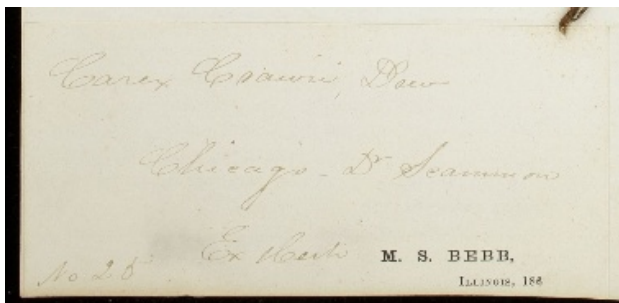 Carex Crawii, Dew
Chicago - Dr Scammon
Ex Herb M. S. BEBB,
No 25 ILLINOIS, 186